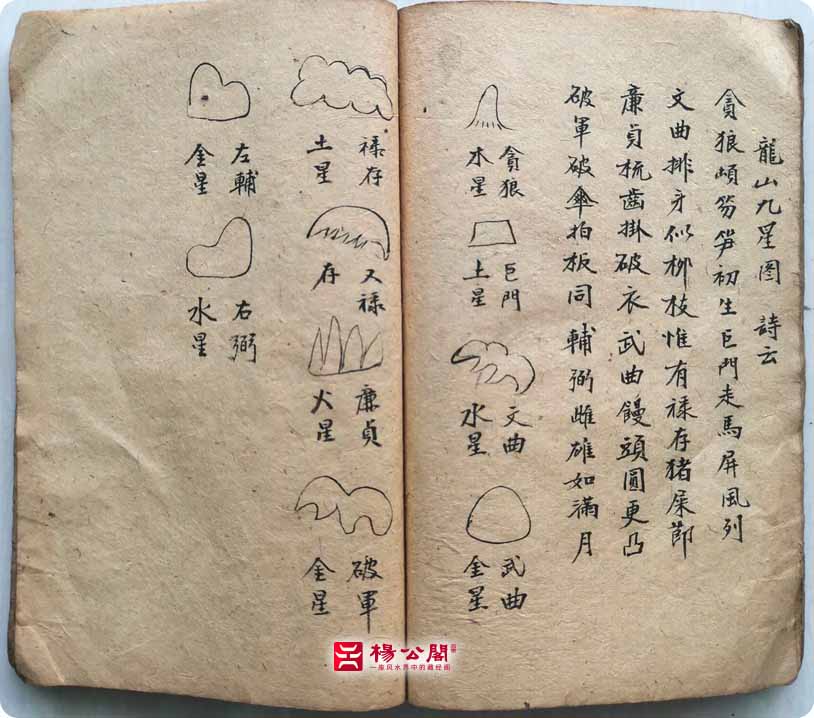 龍山九星图 詩云
貪狼頓笏笋初生巨門走馬屏風列
文曲排牙似柳枝惟有禄存猪屎節
廉貞梳齒掛破衣武曲饅頭圓更凸
破軍破傘拍板同輔弼雌雄如滿月
貪狼
木星
巨門
土星
文曲
水星
武曲
金星
禄存
土星
又禄
存
廉貞
火星
破軍
金星
左輔
金星
右弼
水星
楊公閣
一座风水界中的藏经阁